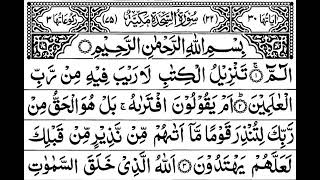 اٰیَاتُهَا ٣٠ (٣٢) سُوْرَةُ السَّجْدَةِ مَكِّیَّةٌ (٧٥) رُكُوْعَاتُهَا ٣
بِسْمِ اللّٰهِ الرَّحْمٰنِ الرَّحِیْمِ
الٓمّٓ ۚ۝ تَنْزِیْلُ الْكِتٰبِ لَا رَیْبَ فِیْهِ مِنْ رَّبِّ
الْعٰلَمِیْنَ ۝ اَمْ یَقُوْلُوْنَ افْتَرٰىهُ ۚ بَلْ هُوَ الْحَقُّ مِنْ
رَّبِّكَ لِتُنْذِرَ قَوْمًا مَّاۤ اَتٰىهُمْ مِّنْ نَّذِیْرٍ مِّنْ قَبْلِكَ
لَعَلَّهُمْ یَهْتَدُوْنَ ۝ اَللّٰهُ الَّذِیْ خَلَقَ السَّمٰوٰتِ